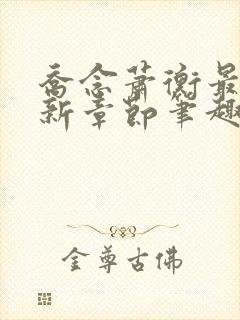 乔念萧衡最
新章节笔趣
金尊古佛